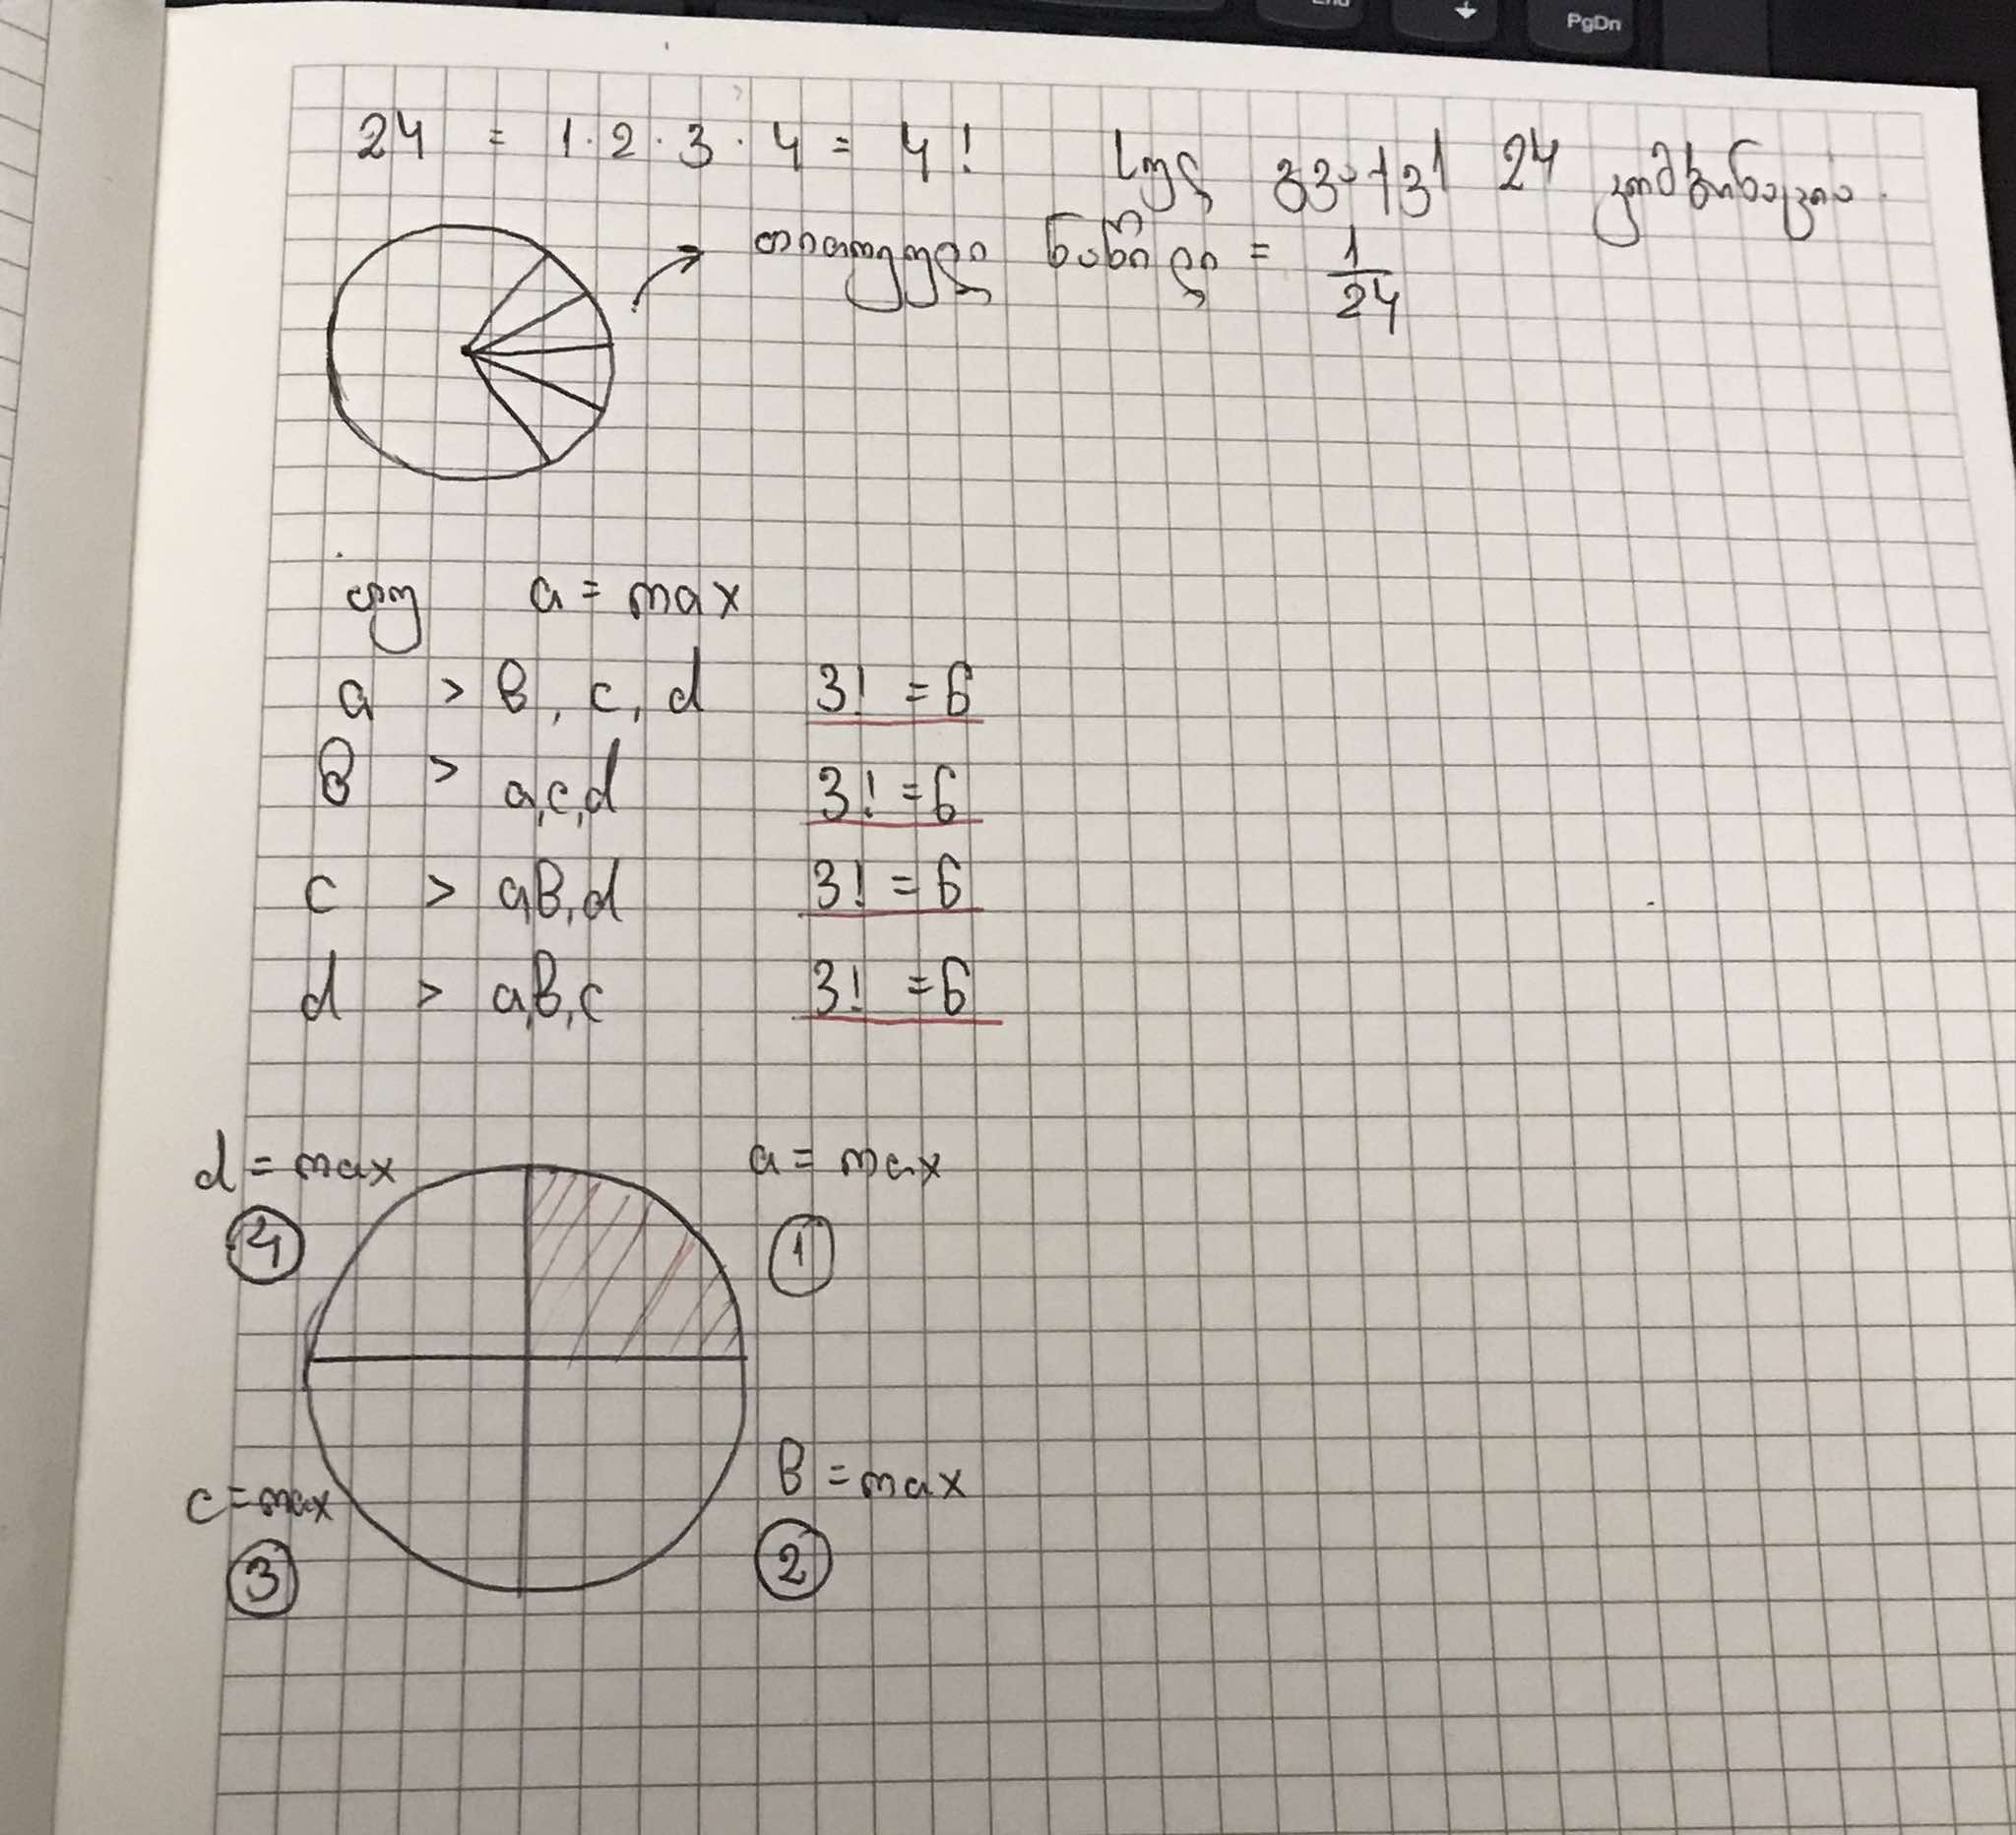 End
PgDn
24 = 1·2·3·4 = 4! სულ გვაქვს 24 კომბინაცია.
თითოეული ნაწილი = 1/24
თუ a = max
a > b, c, d 3! = 6
b > a,c,d 3! = 6
c > a,b,d 3! = 6
d > a,b,c 3! = 6
d = max a = max
4 1
b = max
c = max
3 2